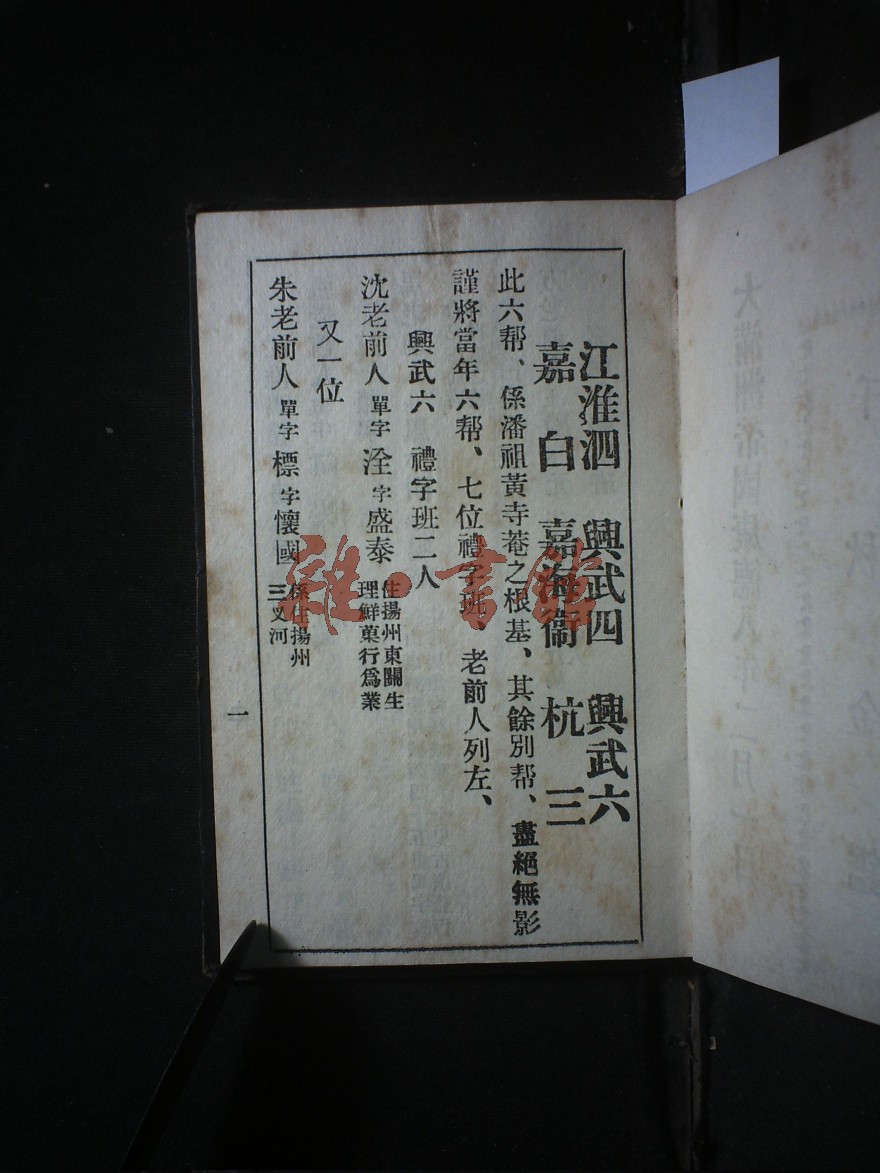 江淮泗　興武四　興武六
嘉　白　嘉海衞　杭　三
此六帮、係潘祖黃寺菴之根基、其餘別帮、盡絕無影
謹將當年六帮、七位禮字班、老前人列左、
興武六　禮字班二人
沈老前人 單字 洤 字 盛泰 住揚州東關生
理鮮菓行爲業
又一位
朱老前人 單字 標 字 懷國 係住揚州
三叉河
一
雜·書館